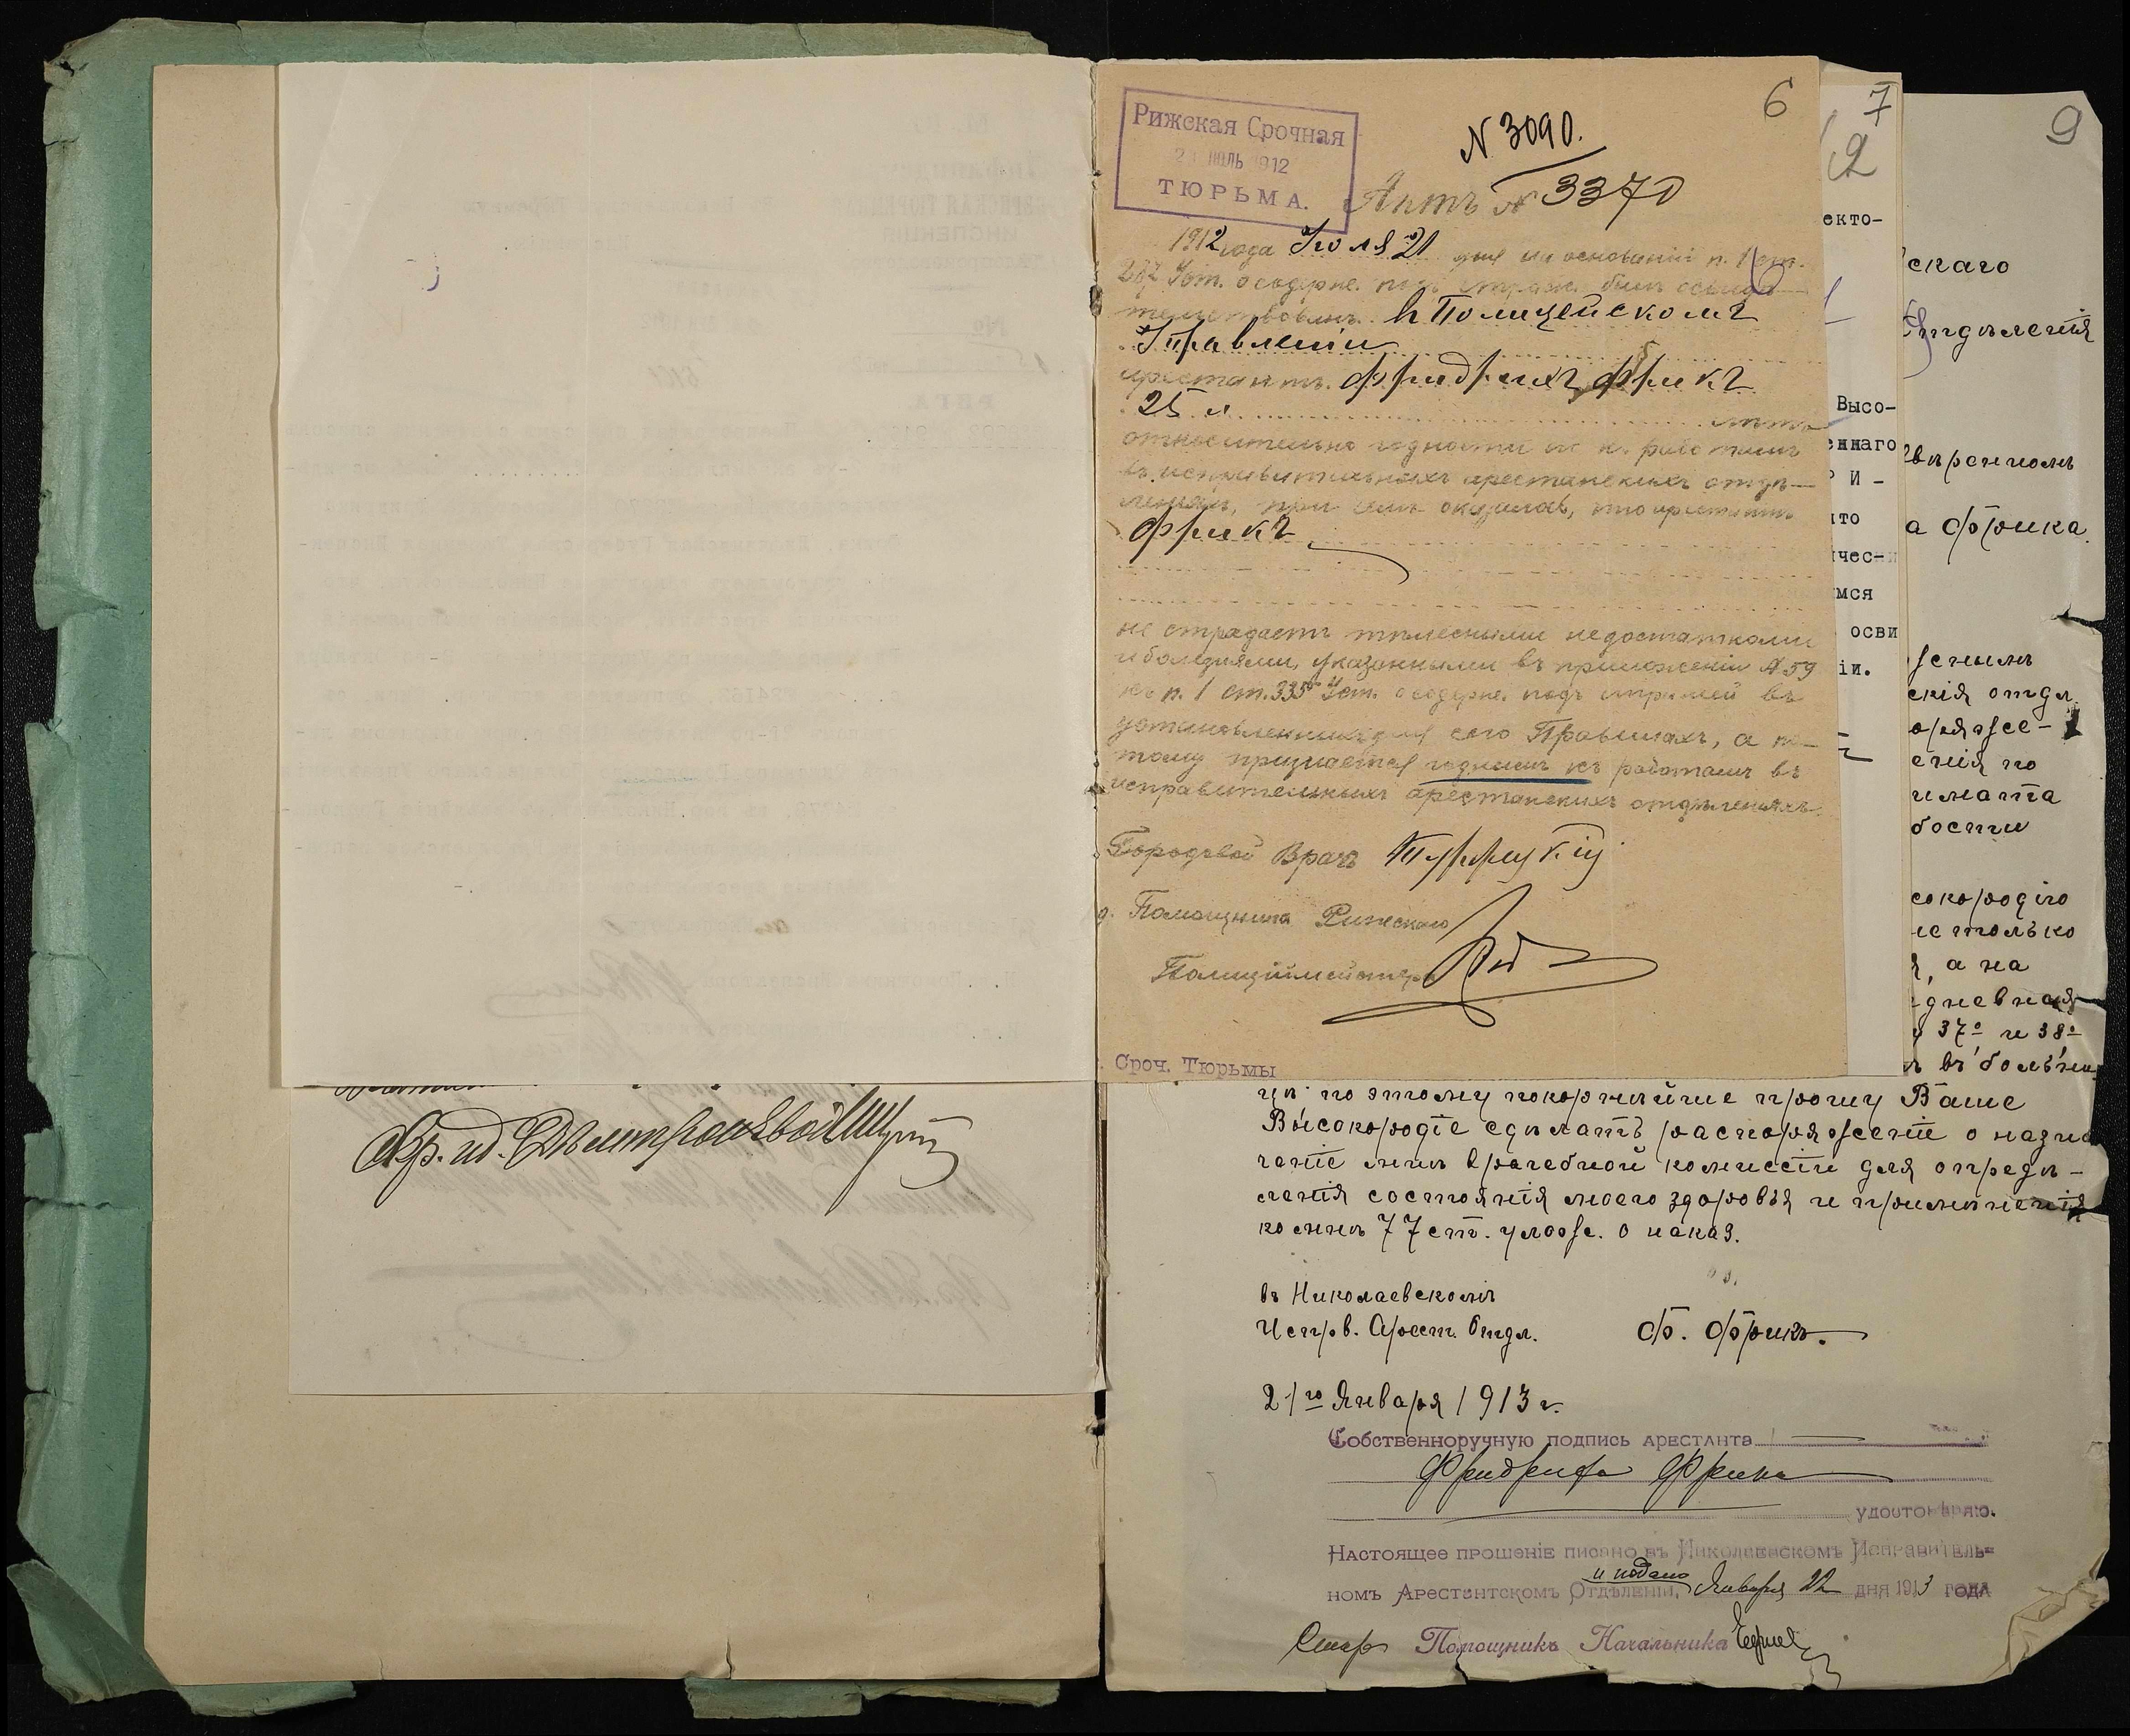 6
Рижская Срочная
21 ІЮЛЬ 1912
ТЮРЬМА.
N 3090.
Актъ № 3370
1912 года Іюля 21 дня на основаніи п. 1 ст.
282 Уст. о содерж. под страж. былъ освидѣ-
тельствованъ въ Полицейскомъ
Управленіи
арестантъ Фридрихъ Фрикъ
25 л.
относительно годности его къ работамъ
въ исправительныхъ арестанскихъ отдѣ-
леніяхъ, при чемъ оказалось, что арестантъ
Фрикъ
не страдаетъ тѣлесными недостатками
и болезнями, указанными въ приложеніи № 59
къ п. 1 ст. 335 Уст. о содерж. подъ стражей въ
установленныхъ для сего Правилахъ, а по-
тому признается годнымъ къ работамъ въ
исправительныхъ арестанскихъ отдѣленіяхъ.
Городовой Врачъ
Помощника Рижскаго
Полиціймейстера
Сроч. Тюрьмы
7
2
екто-
Высо-
еннаго
И -
то
чес-
мся
осви
іи.
9
скаго
Отдѣленія
а Фрика.
скія отдѣ
оряже-
енія по
имата
бости
сокородіго
не только
, а на
дневная
37º и 38º
въ больни
цѣ по этому покорнѣйше прошу Ваше
Высокородіе сдѣлать распоряженіе о назна
ченіе мнѣ врачебной комиссіи для опредѣ-
ленія состоянія моего здоровья и примѣненія
ко мнѣ 77 ст. улож. о наказ.
въ Николаевскомъ
Испр. Арест. Отдл.
Ф. Фрикъ.
21го Января 1913 г.
Собственноручную подпись арестанта
Фридриха Фрика
удостовѣряю.
Настоящее прошеніе писано въ Николаевскомъ Исправитель-
и подано
номъ Арестантскомъ Отдѣленіи, Января 22 дня 1913 года
Старш Помощникъ Начальника